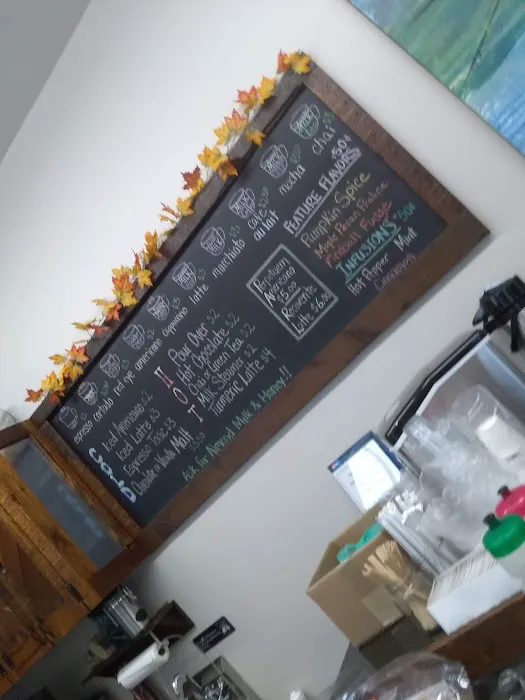 espresso cortado red eye americano cappuccino latte macchiato café au lait mocha chai
COLD
Iced Americano $2
Iced Latte $3
Espresso Tonic $5
Malt
HOT
Pour Over $2
Hot Chocolate $2
Chai & Green Tea $2
Milk Steamer $2
Turmeric Latte $4
Ask for Almond Milk & Honey!!
Peruvian
Americano
$5.00
Latte $6.00
FEATURE FLAVORS 50¢
Pumpkin Spice
Maple Pecan Praline
Fireball Fudge
INFUSIONS 50¢
Hot Pepper Mint
Cinnamon